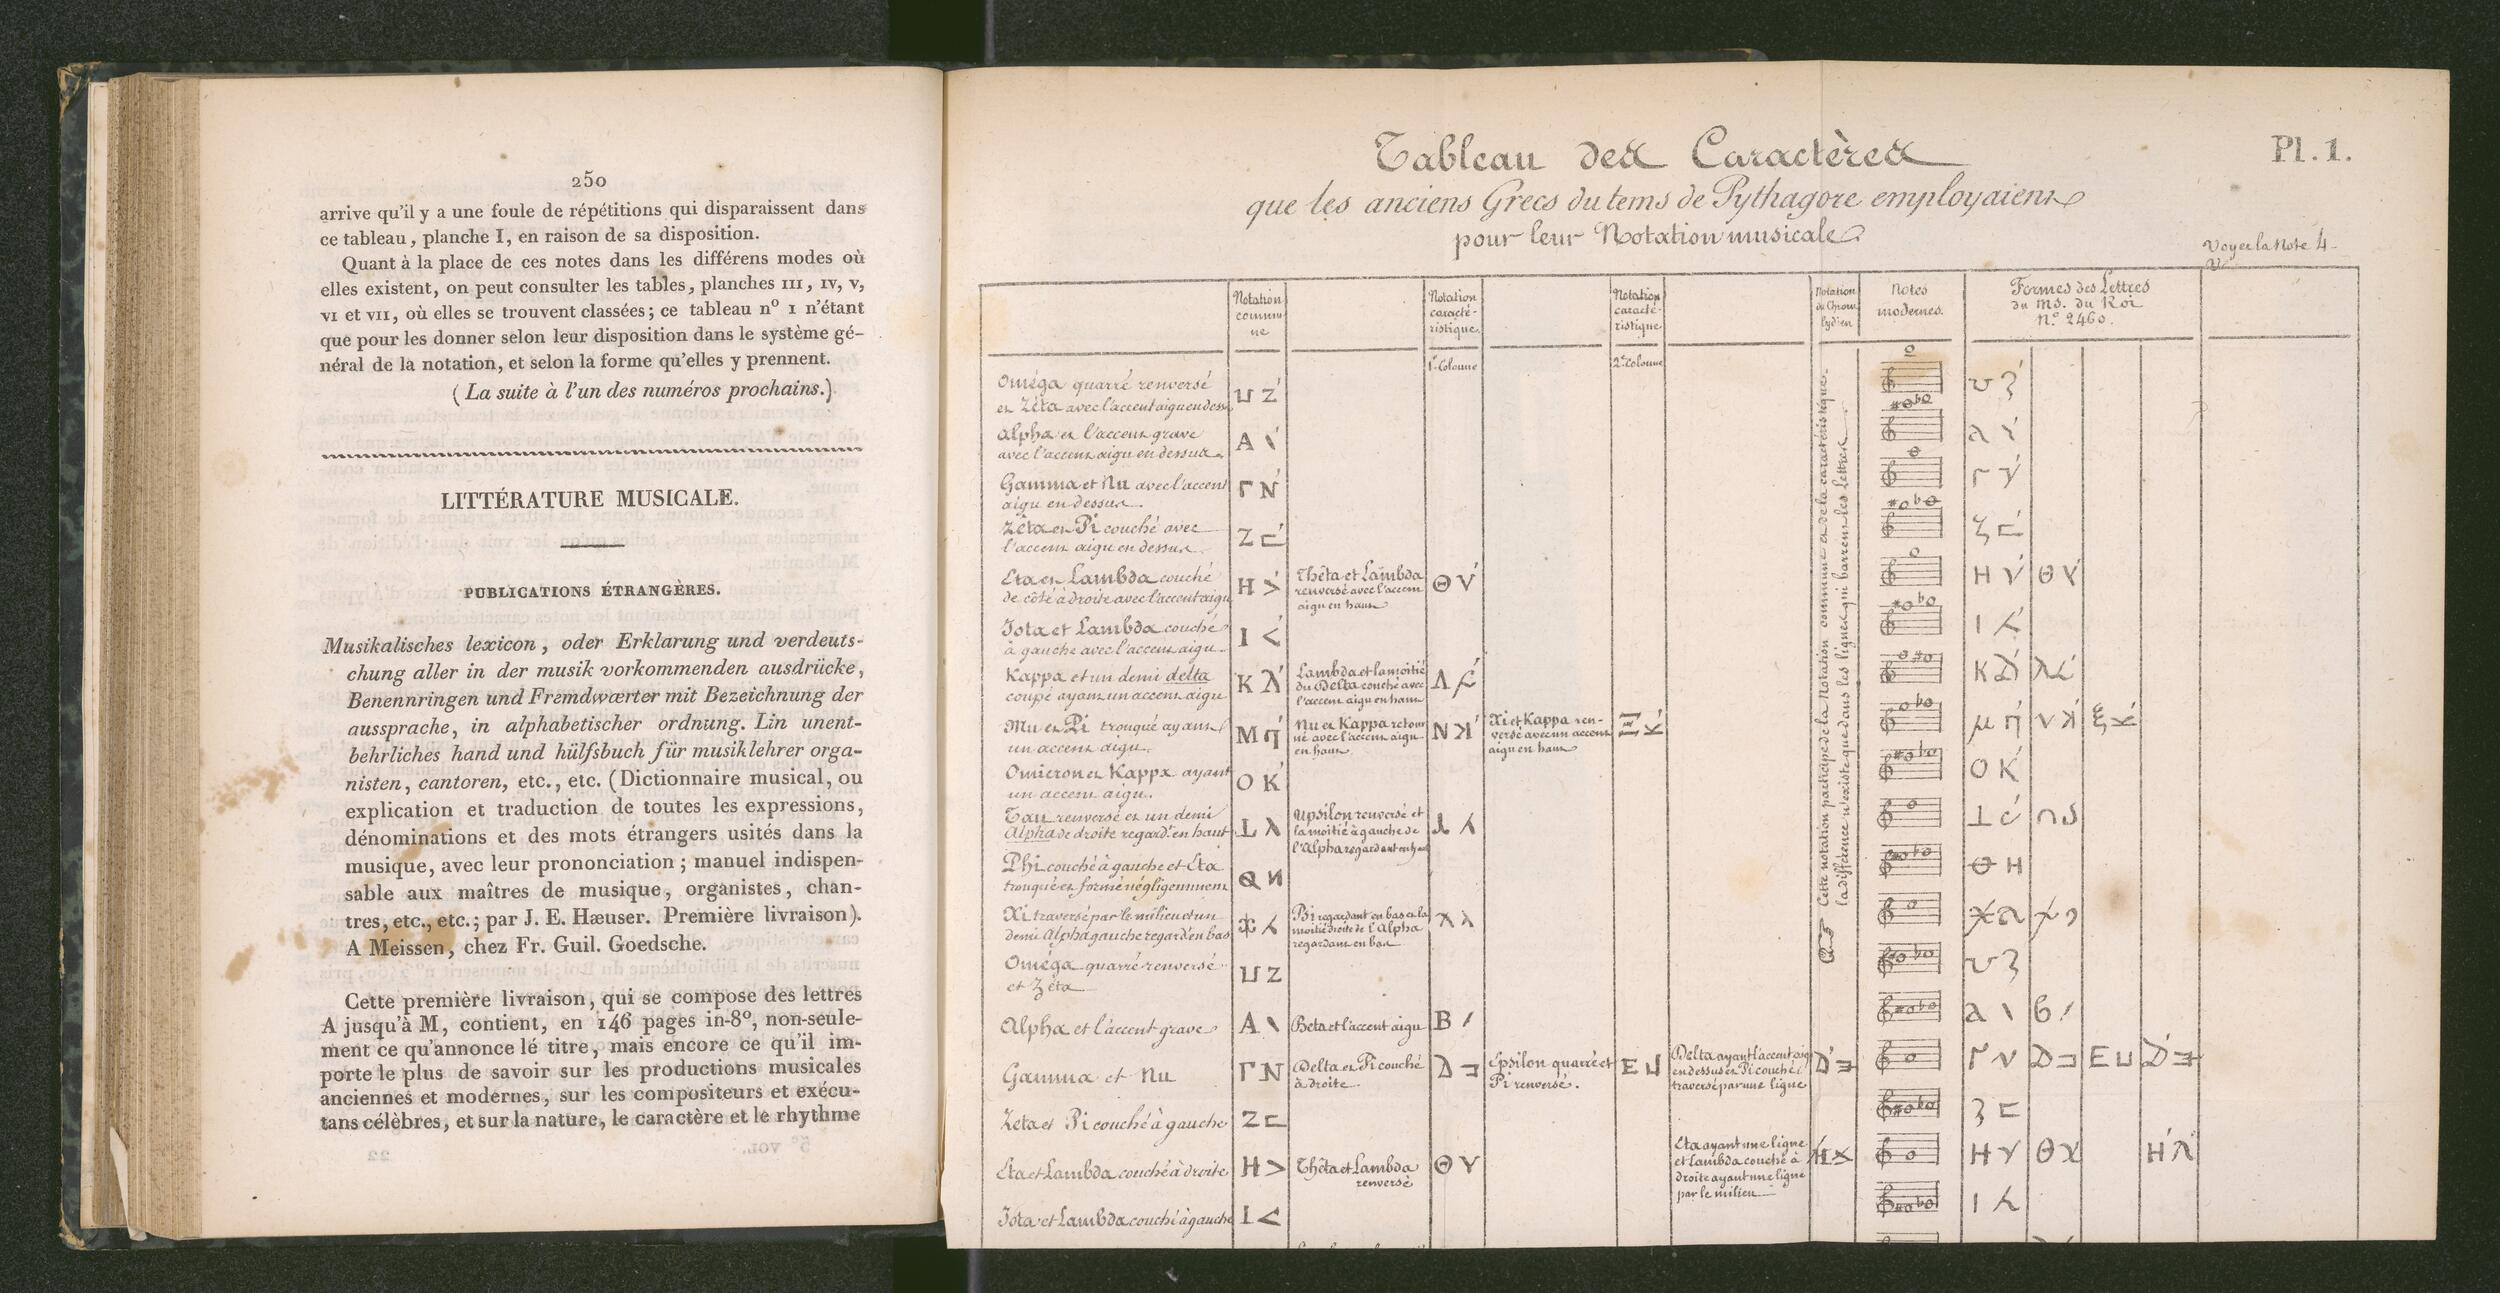 250
arrive qu'il y a une foule de répétitions qui disparaissent dans
ce tableau, planche I, en raison de sa disposition.
Quant à la place de ces notes dans les différens modes où
elles existent, on peut consulter les tables, planches III, IV, V,
VI et VII, où elles se trouvent classées; ce tableau n° I n'étant
que pour les donner selon leur disposition dans le système gé-
néral de la notation, et selon la forme qu'elles y prennent.
(La suite à l'un des numéros prochains.)
LITTÉRATURE MUSICALE.
PUBLICATIONS ÉTRANGÈRES.
Musikalisches lexicon, oder Erklarung und verdeuts-
chung aller in der musik vorkommenden ausdrücke,
Benennringen und Fremdwœrter mit Bezeichnung der
aussprache, in alphabetischer ordnung. Lin unent-
behrliches hand und hülfsbuch für musiklehrer orga-
nisten, cantoren, etc., etc. (Dictionnaire musical, ou
explication et traduction de toutes les expressions,
dénominations et des mots étrangers usités dans la
musique, avec leur prononciation; manuel indispen-
sable aux maîtres de musique, organistes, chan-
tres, etc., etc.; par J. E. Hæuser. Première livraison).
A Meissen, chez Fr. Guil. Goedsche.
Cette première livraison, qui se compose des lettres
A jusqu'à M, contient, en 146 pages in-8°, non-seule-
ment ce qu'annonce lé titre, mais encore ce qu'il im-
porte le plus de savoir sur les productions musicales
anciennes et modernes, sur les compositeurs et exécu-
tans célèbres, et sur la nature, le caractère et le rhythme
Pl. 1.
Tableau des Caractères
que les anciens Grecs du tems de Pythagore employaient
pour leur Notation musicale
Voyez la Note 4
Notation commune
Notation caracté-ristique.
Notation caracté-ristique
Notation du Chrom. lydien
Notes modernes.
Formes des Lettres du ms. du Roi N.° 2460.
1.re Colonne
2.e Colonne
Oméga quarré renversé
et Zéta avec l'accent aigu en dessus
Alpha et l'accent grave
avec l'accent aigu en dessus
Α
Gamma et Nu avec l'accent
aigu en dessus
Γ Ν
Zéta et Pi couché avec
l'accent aigu en dessus
Eta et Lambda couché
de côté à droite avec l'accent aigu
Η >
Thêta et Lambda
renversé avec l'accent
aigu en haut
Iota et Lambda couché
à gauche avec l'accent aigu
Ι <
Kappa et un demi delta
coupé ayant un accent aigu
Lambda et la moitié
du Delta couché avec
l'accent aigu en haut
Mu et Pi tronqué ayant
un accent aigu.
Nu et Kappa retour
né avec l'accent aigu
en haut
Xi et Kappa ren-
versé avec un accent
aigu en haut
Omicron et Kappa ayant
un accent aigu.
Ο Κ́
Tau renversé et un demi
Alpha de droite regard.t en haut
Upsilon renversé et
la moitié à gauche de
l'Alpha regardant en haut
Phi couché à gauche et Eta
tronqué et formé négligemment
Xi traversé par le milieu et un
demi Alpha gauche regard.t en bas
Psi regardant en bas et la
moitié droite de l'Alpha
regardant en bas
Oméga quarré renversé
et Zéta
Alpha et l'accent grave
Α \
Beta et l'accent aigu
Β /
Gamma et Nu
Γ Ν
Delta et Pi couché
à droite
Epsilon quarré et
Pi renversé.
Ε ⊔
Delta ayant l'accent aigu
en dessus et Pi couché
traversé par une ligne
Zeta et Pi couché à gauche
Ζ ⊏
Eta et Lambda couché à droite
Η >
Thêta et Lambda
renversé
Eta ayant une ligne
et Lambda couché à
droite ayant une ligne
par le milieu
Iota et Lambda couché à gauche
Ι <
Cette notation participe de la Notation commune et de la caractéristique.
la différence n'existe que dans les lignes qui barrent les Lettres.